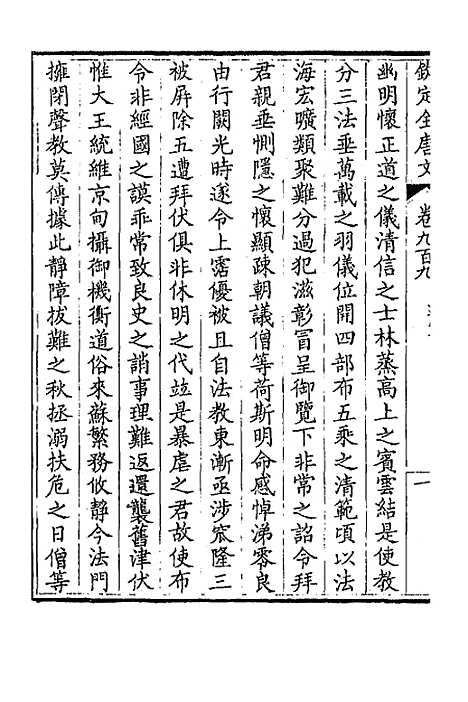 欽定全唐文 卷九百九
幽明懷正道之儀清信之士林蒸高上之賓雲結是使教
分三法垂萬載之羽儀位開四部布五乘之清範頃以法
海宏曠類聚難分過犯滋彰冐呈御覽下非常之詔令拜
君親垂惻隱之懷顯疎朝議僧等荷斯明命感悼涕零良
由行闕光時遂令上霑優被且自法教東漸亟涉窊隆三
被屏除五遭拜伏俱非休明之代竝是暴虐之君故使布
令非經國之謨乖常致良史之誚事理難返還襲舊津伏
惟大王統維京甸攝御機衡道俗來蘇繁務攸靜今法門
擁閉聲教莫傳據此靜障拔難之秋拯溺扶危之日僧等
一